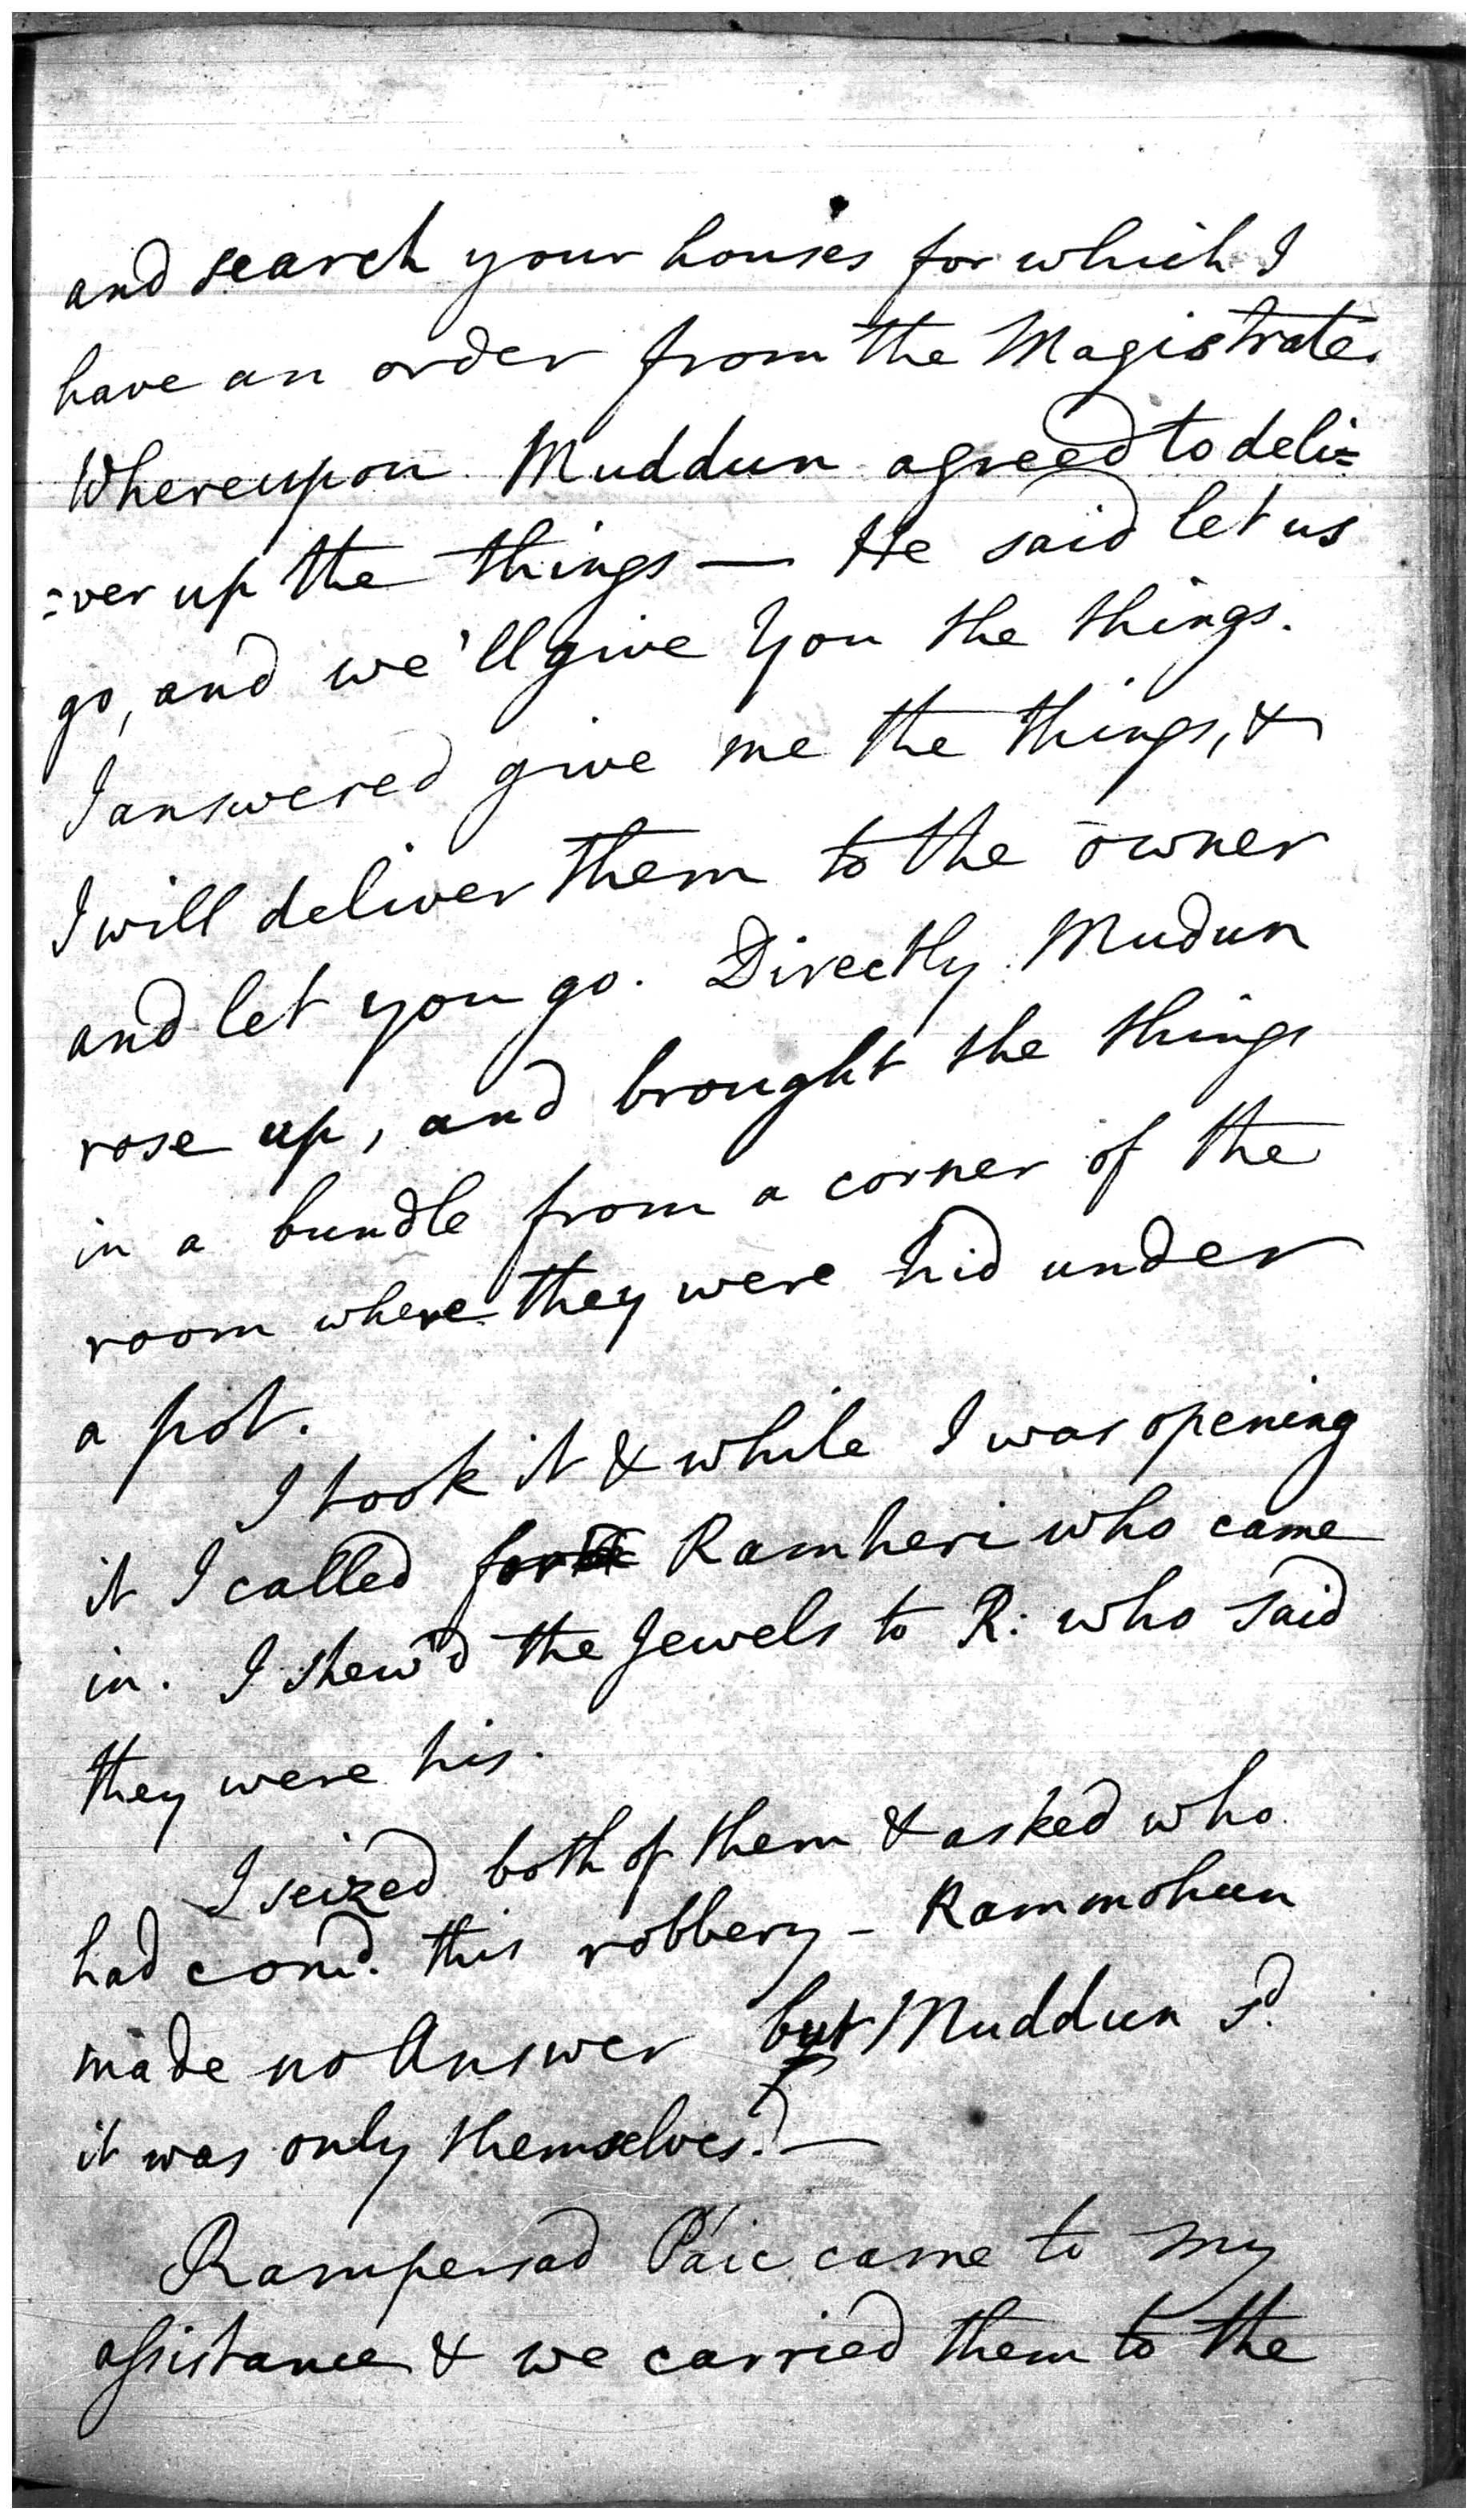 and search your houses for which I
have an order from the Magistrate.
Whereupon Muddun agreed to deli=
=ver up the things — He said let us
go, and we'll give You the things.
I answered give me the things, &
I will deliver them to the owner
and let you go. Directly Mudun
rose up, and brought the things
in a bundle from a corner of the
room where they were hid under
a pot.
I took it & while I was opening
it I called Ramheri who came
in. I shew'd the Jewels to R: who said
they were his.
I seized both of them & asked who
had comd. this robbery – Rammohun
made no Answer but Muddun sd.
it was only themselves. —
Rampersad Paic came to my
assistance & we carried them to the